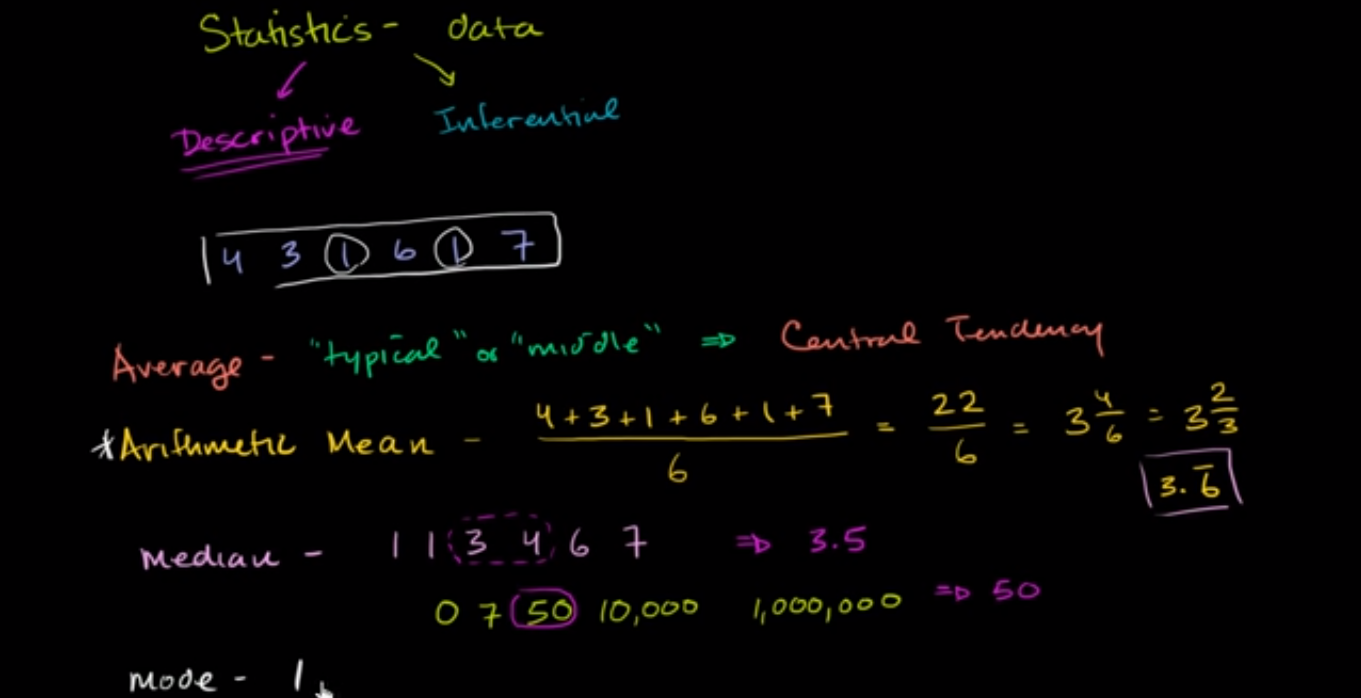 Statistics - data
Descriptive Inferential
4 3 1 6 1 7
Average - "typical" or "middle" ⇒ Central Tendency
*Arithmetic Mean - (4+3+1+6+1+7)/6 = 22/6 = 3 4/6 = 3 2/3
3.6̅
Median - 1 1 3 4 6 7 ⇒ 3.5
0 7 50 10,000 1,000,000 ⇒ 50
mode - 1